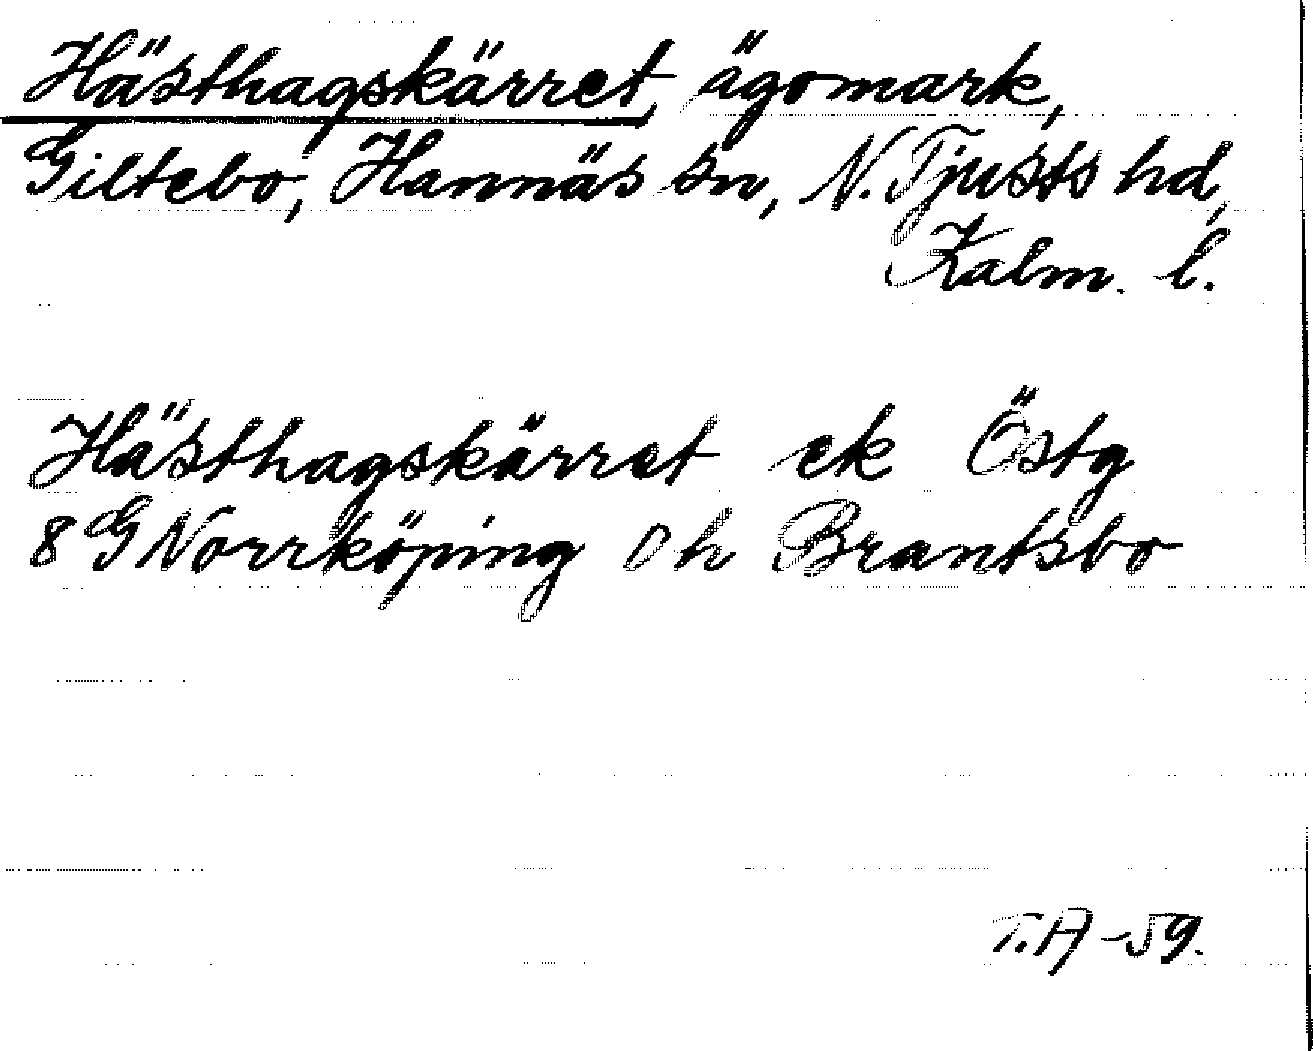 Hästhagskärret, ägomark,
Giltebo, Hannäs sn, N. Tjusts hd,
Kalm. l.
Hästhagskärret ek Östg
8 G Norrköping 0 h Brantsbo
T.A -59.